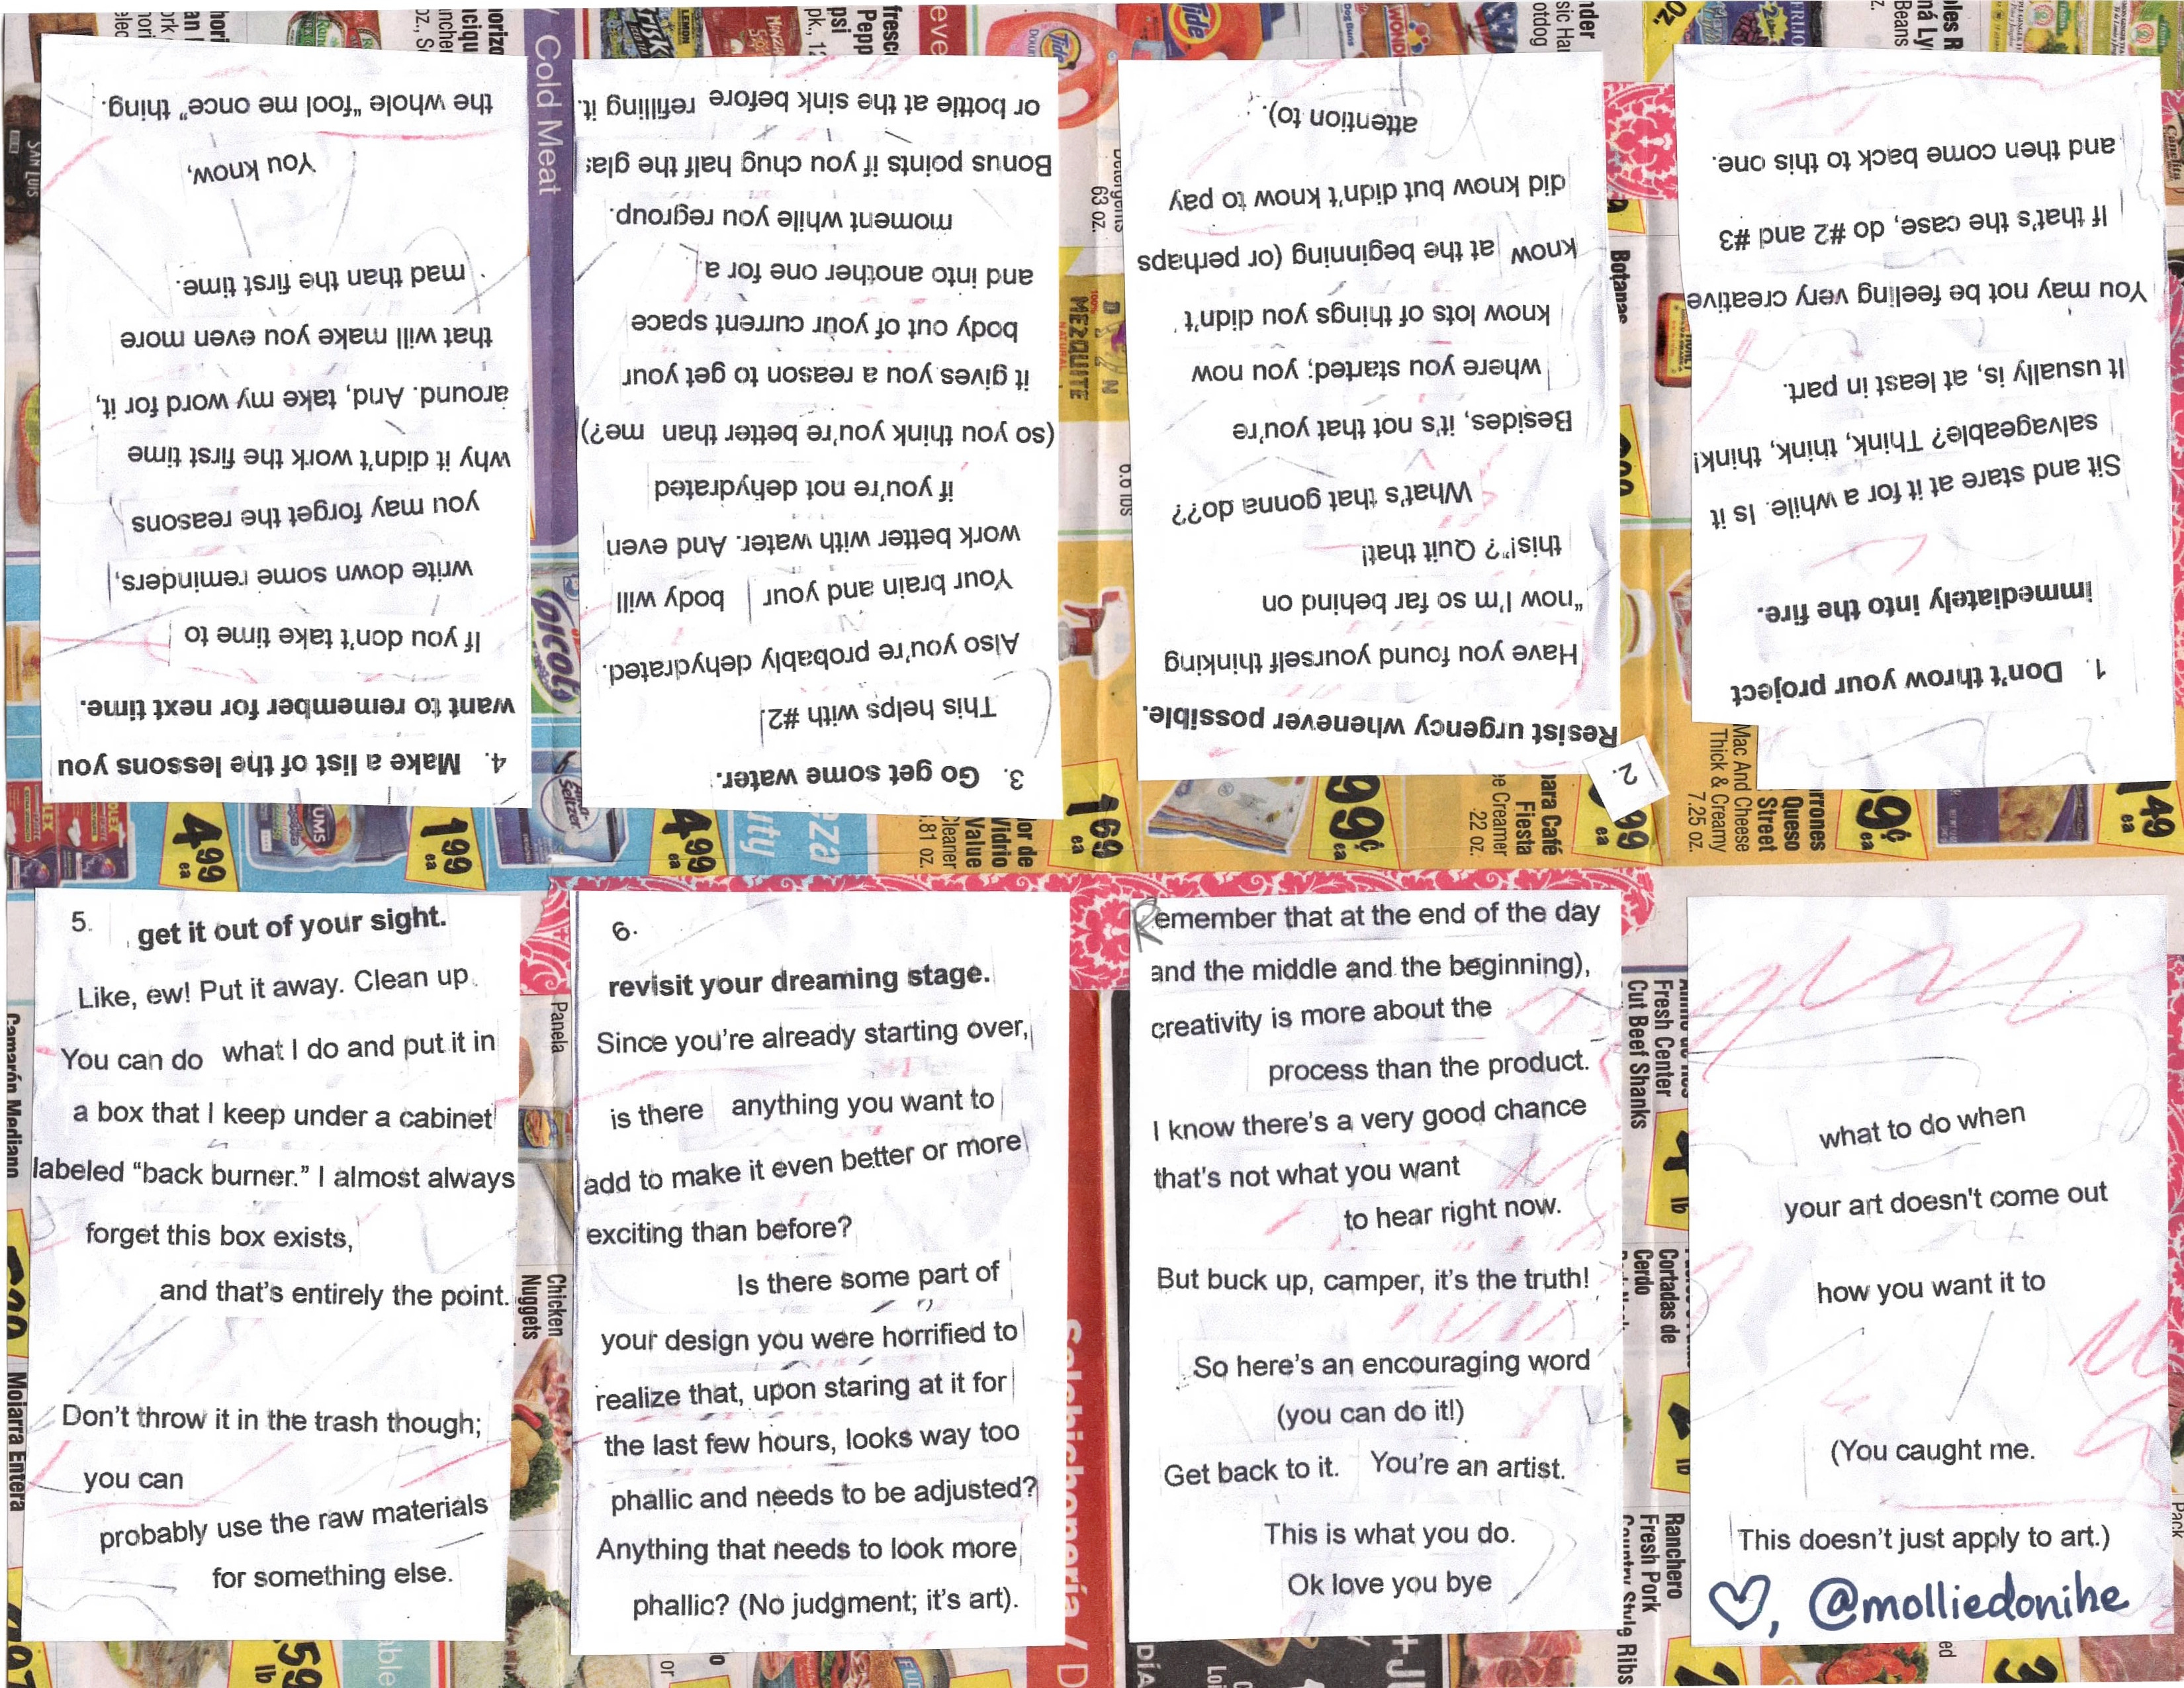 what to do when
your art doesn't come out
how you want it to
(You caught me.
This doesn't just apply to art.)
♡, @molliedonihe
1. Don't throw your project
immediately into the fire.
Sit and stare at it for a while. Is it
salvageable? Think, think, think!
It usually is, at least in part.
You may not be feeling very creative
If that's the case, do #2 and #3
and then come back to this one.
2.
Resist urgency whenever possible.
Have you found yourself thinking
"now I'm so far behind on
this!"? Quit that!
What's that gonna do??
Besides, it's not that you're
where you started; you now
know lots of things you didn't
know at the beginning (or perhaps
did know but didn't know to pay
attention to).
3. Go get some water.
This helps with #2.
Also you're probably dehydrated.
Your brain and your body will
work better with water. And even
if you're not dehydrated
(so you think you're better than me?)
it gives you a reason to get your
body out of your current space
and into another one for a
moment while you regroup.
Bonus points if you chug half the glas
or bottle at the sink before refilling it.
4. Make a list of the lessons you
want to remember for next time.
If you don't take time to
write down some reminders,
you may forget the reasons
why it didn't work the first time
around. And, take my word for it,
that will make you even more
mad than the first time.
You know,
the whole "fool me once" thing.
5. get it out of your sight.
Like, ew! Put it away. Clean up.
You can do what I do and put it in
a box that I keep under a cabinet
labeled “back burner.” I almost always
forget this box exists,
and that's entirely the point.
Don't throw it in the trash though;
you can
probably use the raw materials
for something else.
6.
revisit your dreaming stage.
Since you're already starting over,
is there anything you want to
add to make it even better or more
exciting than before?
Is there some part of
your design you were horrified to
realize that, upon staring at it for
the last few hours, looks way too
phallic and needs to be adjusted?
Anything that needs to look more
phallic? (No judgment; it's art).
Remember that at the end of the day
and the middle and the beginning),
creativity is more about the
process than the product.
I know there's a very good chance
that's not what you want
to hear right now.
But buck up, camper, it's the truth!
So here's an encouraging word
(you can do it!)
Get back to it. You're an artist.
This is what you do.
Ok love you bye
Cold Meat
MEZQUITE
63 oz.
Botanas
Mac And Cheese
Thick & Creamy
7.25 oz.
Queso
Street
Fiesta
22 oz.
Vidrio
Value
Cleaner
4.99 ea
1.99 ea
4.99 ea
1.69 ea
99¢ ea
Panela
Chicken
Nuggets
Camarón Mediano
Mojarra Entera
Fresh Center
Cut Beef Shanks
Cortadas de
Cerdo
Ranchero
Fresh Pork
Country Style Ribs
Tide
Tide
picot